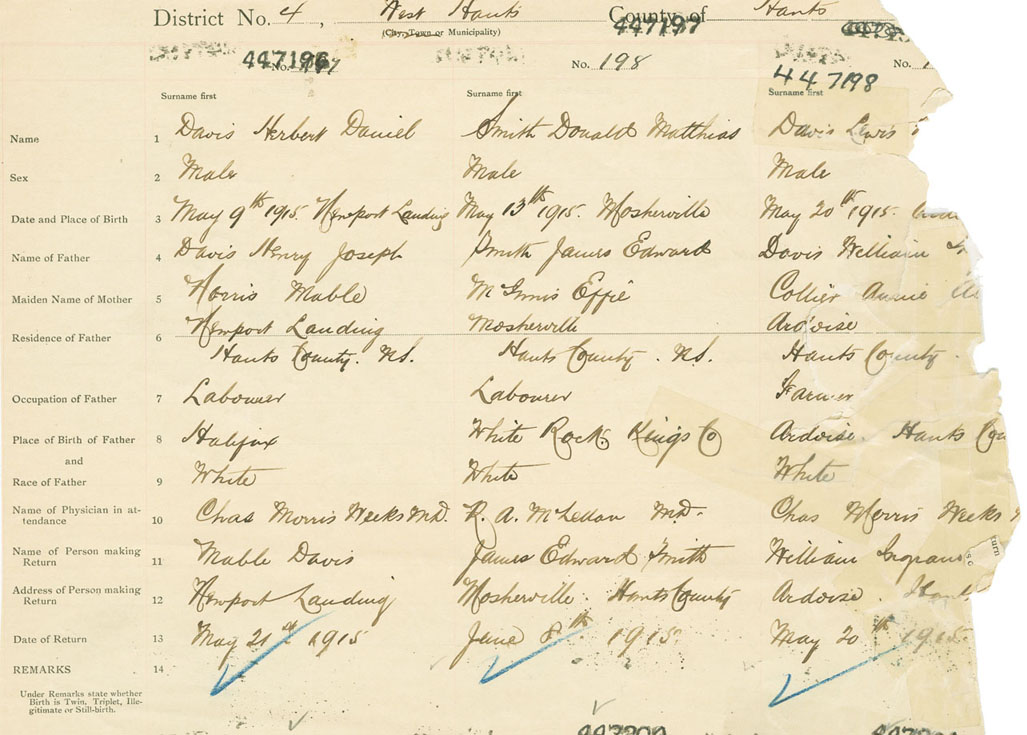 District No. 4, West Hants County of Hants
(City, Town or Municipality) 447197
447196 No. 197 No. 198 No.
447198
Surname first Surname first Surname first
Name 1 Davis Herbert Daniel Smith Donald Matthias Davis Lewis
Sex 2 Male Male Male
Date and Place of Birth 3 May 9th 1915. Newport Landing May 13th 1915. Mosherville May 20th 1915.
Name of Father 4 Davis Henry Joseph Smith James Edward Davis William
Maiden Name of Mother 5 Harris Mable McGinnis Effie Collier Annie
Residence of Father 6 Newport Landing Mosherville Ardoise
Hants County. N.S. Hants County. N.S. Hants County.
Occupation of Father 7 Labourer Labourer Farmer
Place of Birth of Father 8 Halifax White Rock. Kings Co Ardoise. Hants
and
Race of Father 9 White White White
Name of Physician in at-
tendance 10 Chas Morris Weeks M.D. R. A. McLellan M.D. Chas Morris Weeks
Name of Person making
Return 11 Mable Davis James Edward Smith William
Address of Person making
Return 12 Newport Landing Mosherville. Hants County Ardoise.
Date of Return 13 May 21st 1915 June 8th 1915 May 20th 1915
REMARKS 14
Under Remarks state whether
Birth is Twin, Triplet, Ille-
gitimate or Still-birth.